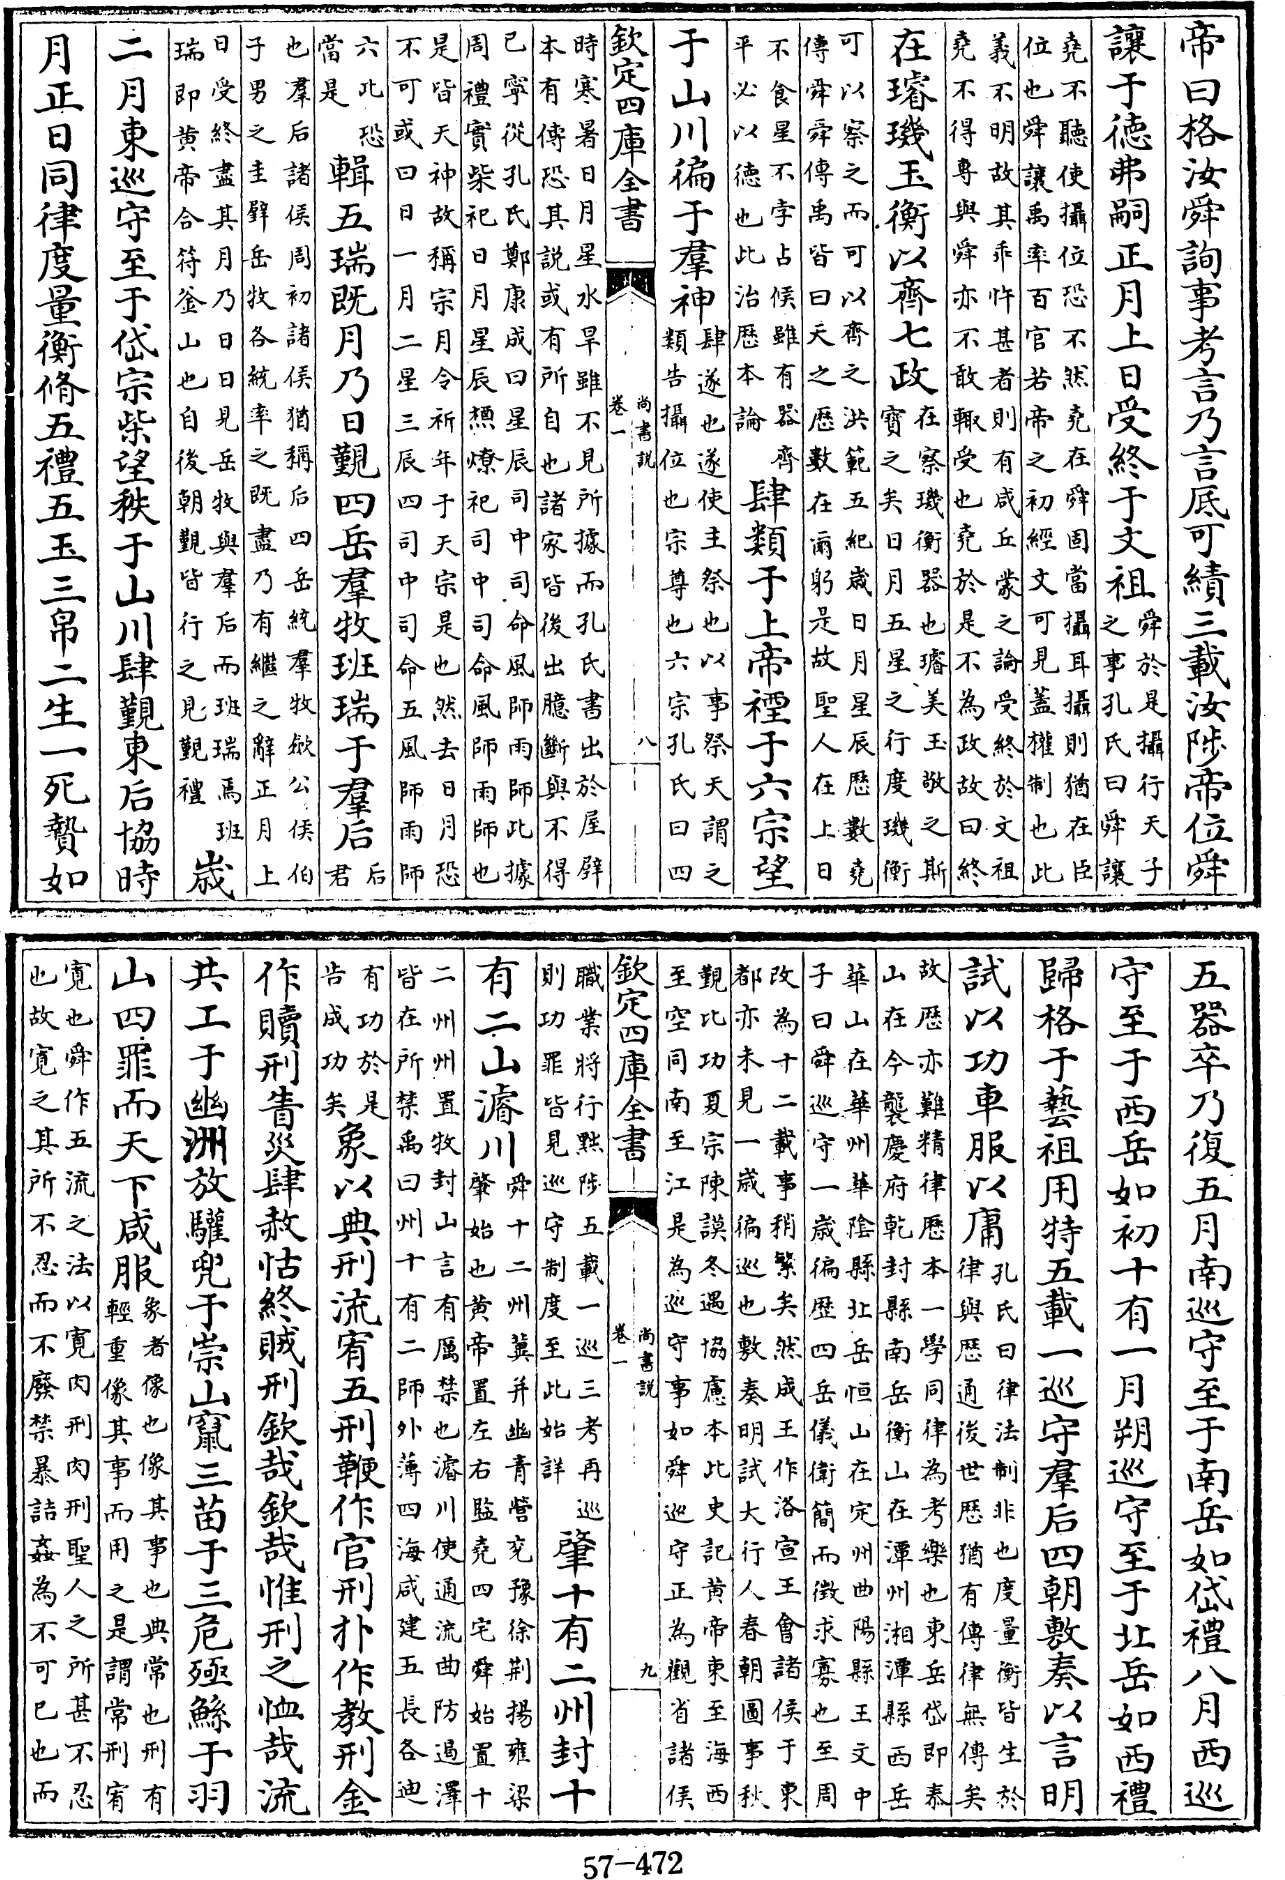 帝曰格汝舜詢事考言乃言底可績三載汝陟帝位舜
讓于徳弗嗣正月上日受終于文祖
舜於是攝行天子
之事孔氏曰舜讓
堯不聽使攝位恐不然堯在舜固當攝耳攝則猶在臣
位也舜讓禹率百官若帝之初經文可見蓋權制也此
義不明故其乖忤甚者則有咸丘蒙之論受終於文祖
堯不得專與舜亦不敢輙受也堯於是不為政故曰終
在璿璣玉衡以齊七政
在察璣衡器也璿美玉敬之斯
寳之矣日月五星之行度璣衡
可以察之而可以齊之洪範五紀嵗日月星辰歴數堯
傳舜舜傳禹皆曰天之歴數在爾躬是故聖人在上日
不食星不孛占候雖有器齊
平必以徳也此治歴本論
肆類于上帝禋于六宗望
于山川徧于羣神
肆遂也遂使主祭也以事祭天謂之
類告攝位也宗尊也六宗孔氏曰四
欽定四庫全書
尚書説
卷一
八
時寒暑日月星水旱雖不見所據而孔氏書出於屋壁
本有傳恐其説或有所自也諸家皆後出臆斷與不得
已寧從孔氏鄭康成曰星辰司中司命風師雨師此據
周禮實柴祀日月星辰槱燎祀司中司命風師雨師也
是皆天神故稱宗月令祈年于天宗是也然去日月恐
不可或曰日一月二星三辰四司中司命五風師雨師
六此恐
當是
輯五瑞既月乃日覲四岳羣牧班瑞于羣后
后
君
也羣后諸侯周初諸侯猶稱后四岳統羣牧歛公侯伯
子男之圭璧岳牧各統率之既盡乃有繼之辭正月上
日受終盡其月乃日日見岳牧與羣后而班瑞焉班
瑞即黄帝合符釜山也自後朝覲皆行之見覲禮
嵗
二月東巡守至于岱宗柴望秩于山川肆覲東后協時
月正日同律度量衡脩五禮五玉三帛二生一死贄如
五器卒乃復五月南巡守至于南岳如岱禮八月西巡
守至于西岳如初十有一月朔巡守至于北岳如西禮
歸格于藝祖用特五載一巡守羣后四朝敷奏以言明
試以功車服以庸
孔氏曰律法制非也度量衡皆生於
律與歴通後世歴猶有傳律無傳矣
故歴亦難精律歴本一學同律為考樂也東岳岱即泰
山在今襲慶府乾封縣南岳衡山在潭州湘潭縣西岳
華山在華州華陰縣北岳恒山在定州曲陽縣王文中
子曰舜巡守一嵗徧歴四岳儀衛簡而徵求寡也至周
改為十二載事稍繁矣然成王作洛宣王會諸侯于東
都亦未見一嵗徧巡也敷奏明試大行人春朝圖事秋
覲比功夏宗陳謨冬遇協慮本此史記黄帝東至海西
至空同南至江是為巡守事如舜巡守正為觀省諸侯
欽定四庫全書
尚書説
卷一
九
職業將行黜陟五載一巡三考再巡
則功罪皆見巡守制度至此始詳
肇十有二州封十
有二山濬川
舜十二州冀并幽青營兖豫徐荆揚雍梁
肇始也黄帝置左右監堯四宅舜始置十
二州州置牧封山言有厲禁也濬川使通流曲防遏澤
皆在所禁禹曰州十有二師外薄四海咸建五長各迪
有功於是
告成功矣
象以典刑流宥五刑鞭作官刑扑作教刑金
作贖刑眚災肆赦怙終賊刑欽哉欽哉惟刑之恤哉流
共工于幽洲放驩兜于崇山竄三苗于三危殛鯀于羽
山四罪而天下咸服
象者像也像其事也典常也刑有
輕重像其事而用之是謂常刑宥
寛也舜作五流之法以寛肉刑肉刑聖人之所甚不忍
也故寛之其所不忍而不廢禁暴詰姦為不可已也而
57-472